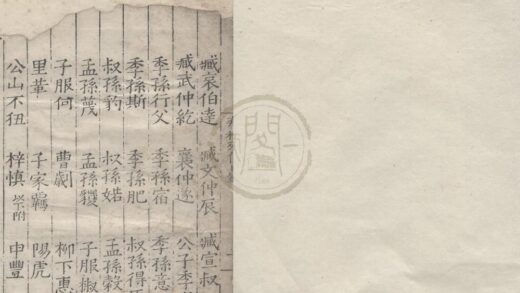 臧哀伯達 臧文仲辰 臧宣叔
臧武仲紇 襄仲遂 公子季
季孫行父 季孫宿 季孫意
季孫斯 季孫肥 叔孫得
叔孫豹 叔孫婼 孟孫穀
孟孫蔑 孟孫玃 子服椒
子服 曹劌 柳下惠
里 子家羈 陽虎
公山不狃 梓慎 附 申豐